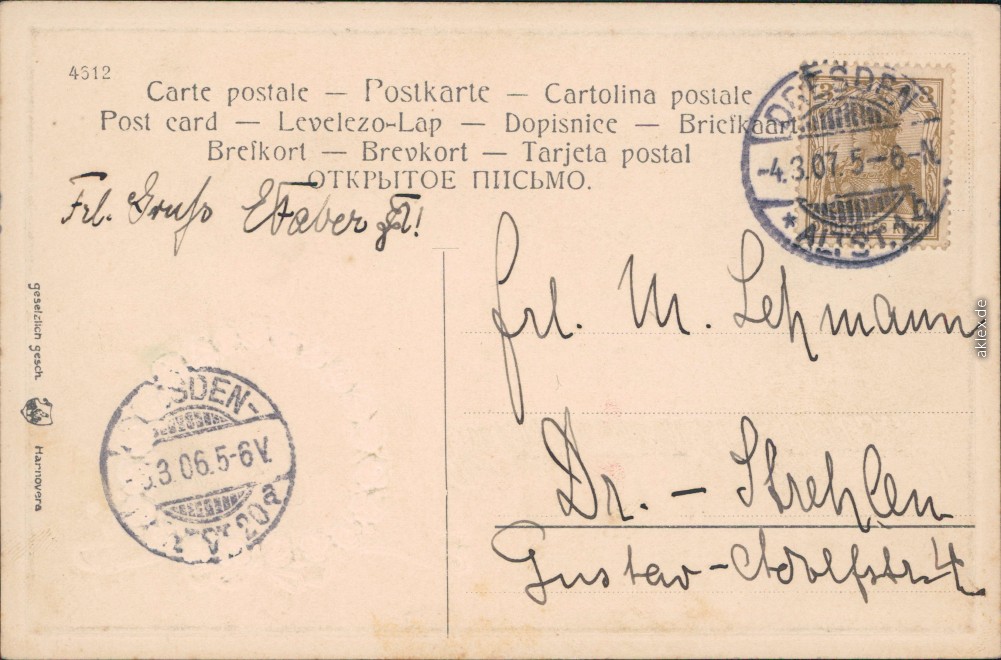 4612
Carte postale — Postkarte — Cartolina postale
Post card — Levelezo-Lap — Dopisnice — Briefkaart
Brefkort — Brevkort — Tarjeta postal
ОТКРЫТОЕ ПИСЬМО.
DRESDEN-
-4.3.07.5-6-N.
* ALTST.
3
Frl. Gruß
gesetzlich gesch.
Hannovera
Frl. M. Lehmann
Dr. - Strehlen
Gustav-Adolfstr. 4
SDEN-
.3.06.5-6V.
20a
aklex.de